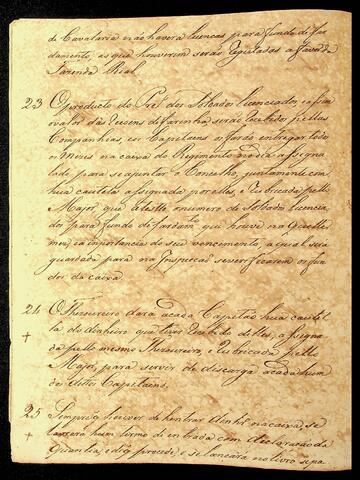 de Cavalaria não haverá licenças para fundo de far
damento, as que houverem serão reguladas a favor da
Fazenda Real
23 O producto do Pret dos Soldados licenciados, e assim
o valor das Rexens de farinha serão recebidos pellas
Companhias, e os Capitaens o farão entregar todos
os Meses na caixa do Regimento no dia assigna
lado para se ajuntar o Concelho, juntamente com
hua cautela assignada por elles, e rubricada pello
Major, que ateste o numero de Soldados licencia
dos para fundo de fardamto que houve na quelle
mez, e a importancia do seu vencimento, a qual será
guardada para na Inspecção se verificarem os fun
dos da caixa.
24 O Thesoureiro dará a cada Capitão hua cautel
+ la do dinheiro que tiver recebido delles, assigna
da pello mesmo Thesoureiro, e rubricada pello
Major, para servir de descarga a cada hum
dos ditos Capitaens.
25 Sempre q houver de hentrar dinhro na caixa, se
+ lavrará hum termo de entrada com declaração da
quantia, e dq procede, e se lancará no livro